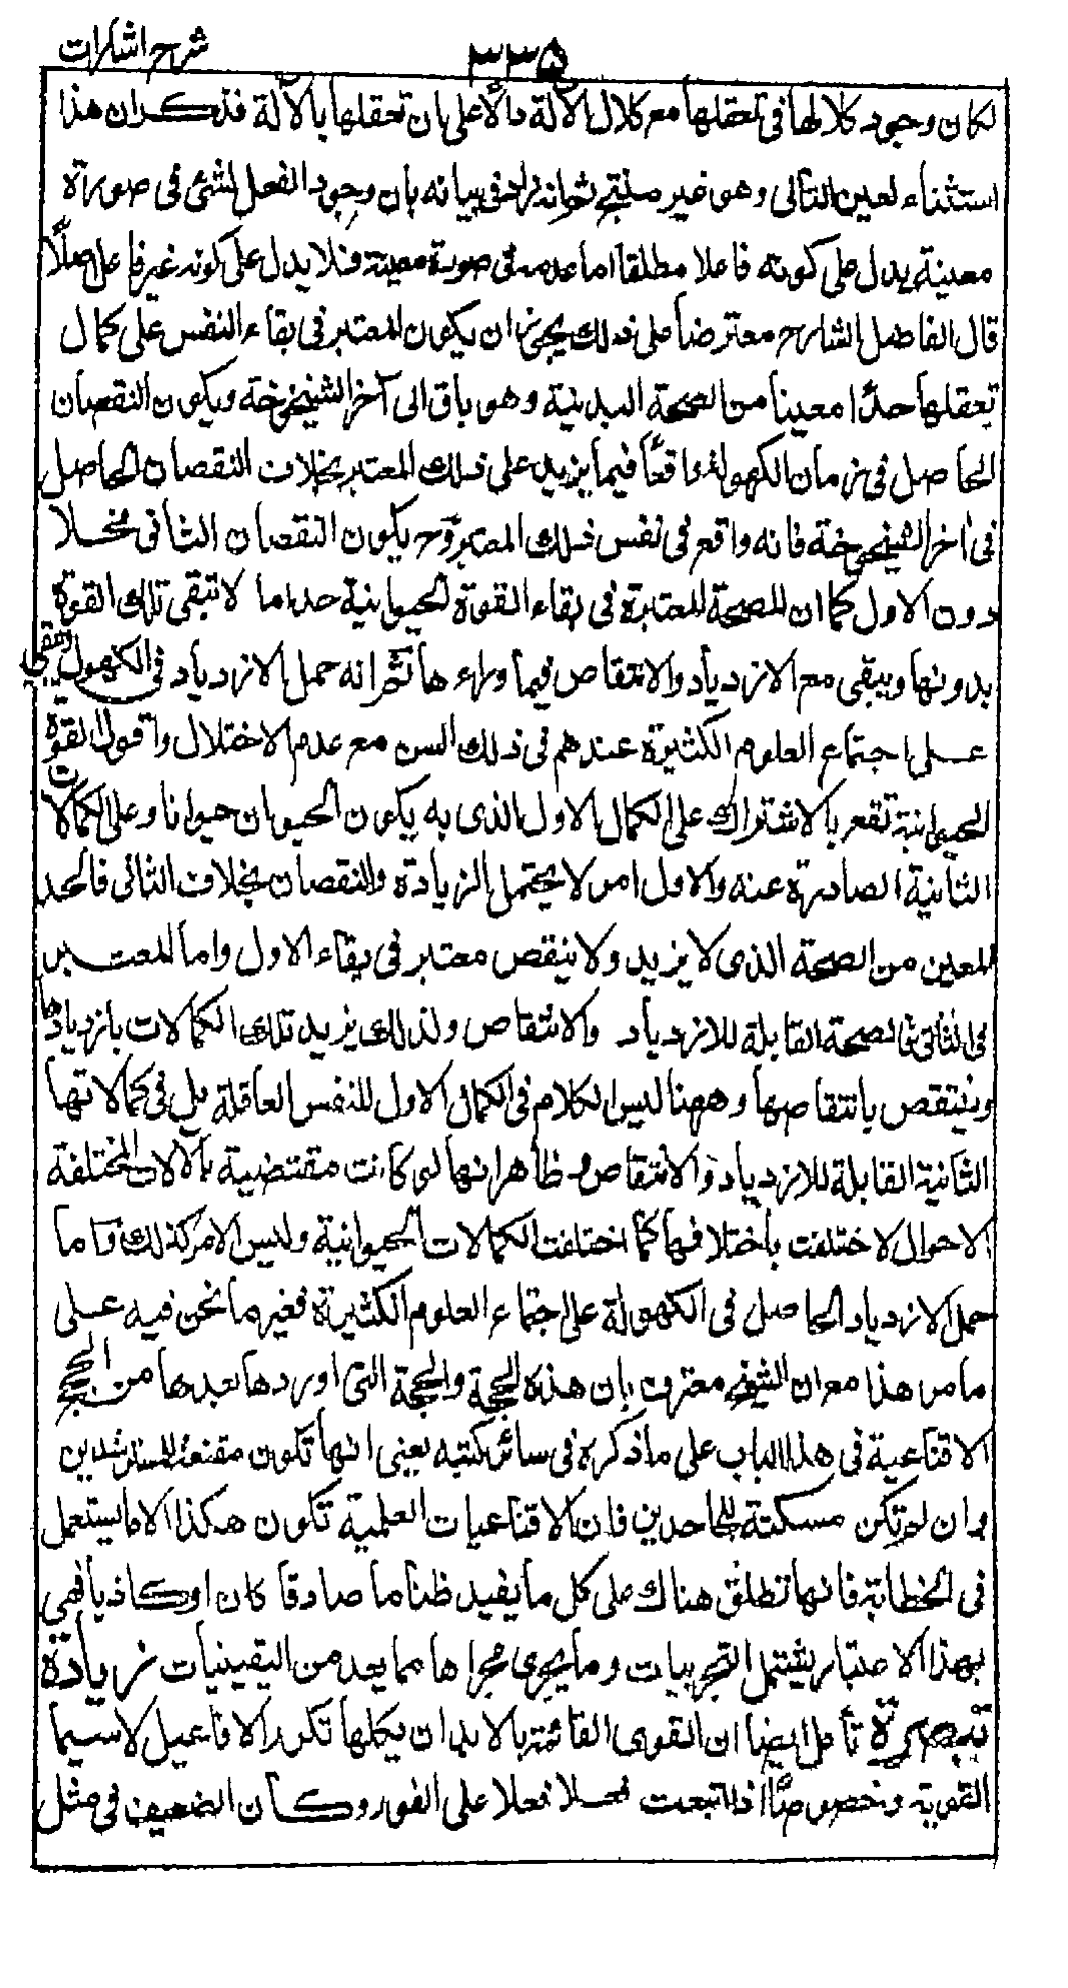 شرح اشارات
٣٣٥
لكان وجود كلالها فى تعقلها مع كلال الآلة دالا على ان تعقلها بالآلة فذكر ان هذا
استثناء لعين التالى وهو غير منتج ثم انه زاد فى بيانه بان وجود الفعل لشئ فى صورة
معينة يدل على كونه فاعلا مطلقا اما عدمه فى صورة معينة فلا يدل على كونه غير فاعل اصلًا
قال الفاضل الشارح معترضا على ذلك يجوز ان يكون المعتبر فى بقاء النفس على كمال
تعقلها حدًا معينا من الصحة البدنية وهو باق الى آخر الشيخوخة ويكون النقصان
الحاصل فى زمان الكهولة واقعًا فيما يزيد على ذلك المعتبر بخلاف النقصان الحاصل
فى آخر الشيخوخة فانه واقع فى نفس ذلك المعتبر وح يكون النقصان الثانى مخلا
دون الاول كما ان للصحة المعتبرة فى بقاء القوة الحيوانية حدا ما لا تبقى تلك القوة
بدونها ويبقى مع الازدياد والانتقاص فيما وراءها ثم انه حمل الازدياد فى الكهول
على اجتماع العلوم الكثيرة عندهم فى ذلك السن مع عدم الاختلال واقول القوة
الحيوانية تقع بالاشتراك على الكمال الاول الذى به يكون الحيوان حيوانا وعلى الكمالات
الثانية الصادرة عنه والاول امر لا يحتمل الزيادة والنقصان بخلاف الثانى فالحد
المعين من الصحة الذى لا يزيد ولا ينقص معتبر فى بقاء الاول واما المعتبر
فى الثانى الصحة القابلة للازدياد والانتقاص ولذلك يزيد تلك الكمالات بازديادها
وينتقص بانتقاصها وههنا ليس الكلام فى الكمال الاول للنفس العاقلة بل فى كمالاتها
الثانية القابلة للازدياد والانتقاص وظاهر انها لو كانت مقتضية بالآلات المختلفة
الاحوال لاختلفت باختلافها كما اختلفت الكمالات الحيوانية وليس الامر كذلك واما
حمل الازدياد الحاصل فى الكهولة على اجتماع العلوم الكثيرة فغير ما نحن فيه على
ما مر هذا مع ان الشيخ معترف بان هذه الحجة والحجة التى اوردها بعدها من الحجج
الاقناعية فى هذا الباب على ما ذكره فى سائر كتبه يعنى انها تكون مقنعة للمسترشدين
وان لم تكن مسكتة للجاحدين فان الاقناعيات العلمية تكون هكذا الا ما يستعمل
فى الخطابة فانها تطلق هناك على كل ما يفيد ظنا ما صادقا كان او كاذبا فهى
بهذا الاعتبار يشتمل التجربيات وما يجرى مجراها مما يعد من اليقينيات زيادة
تبصرة تأمل ايضا ان القوى القائمة بالابدان يكلها تكرر الافاعيل لا سيما
القوية وخصوصًا اذا اتبعت فعلا فعلا على الفور وكان الضعيف فى مثل